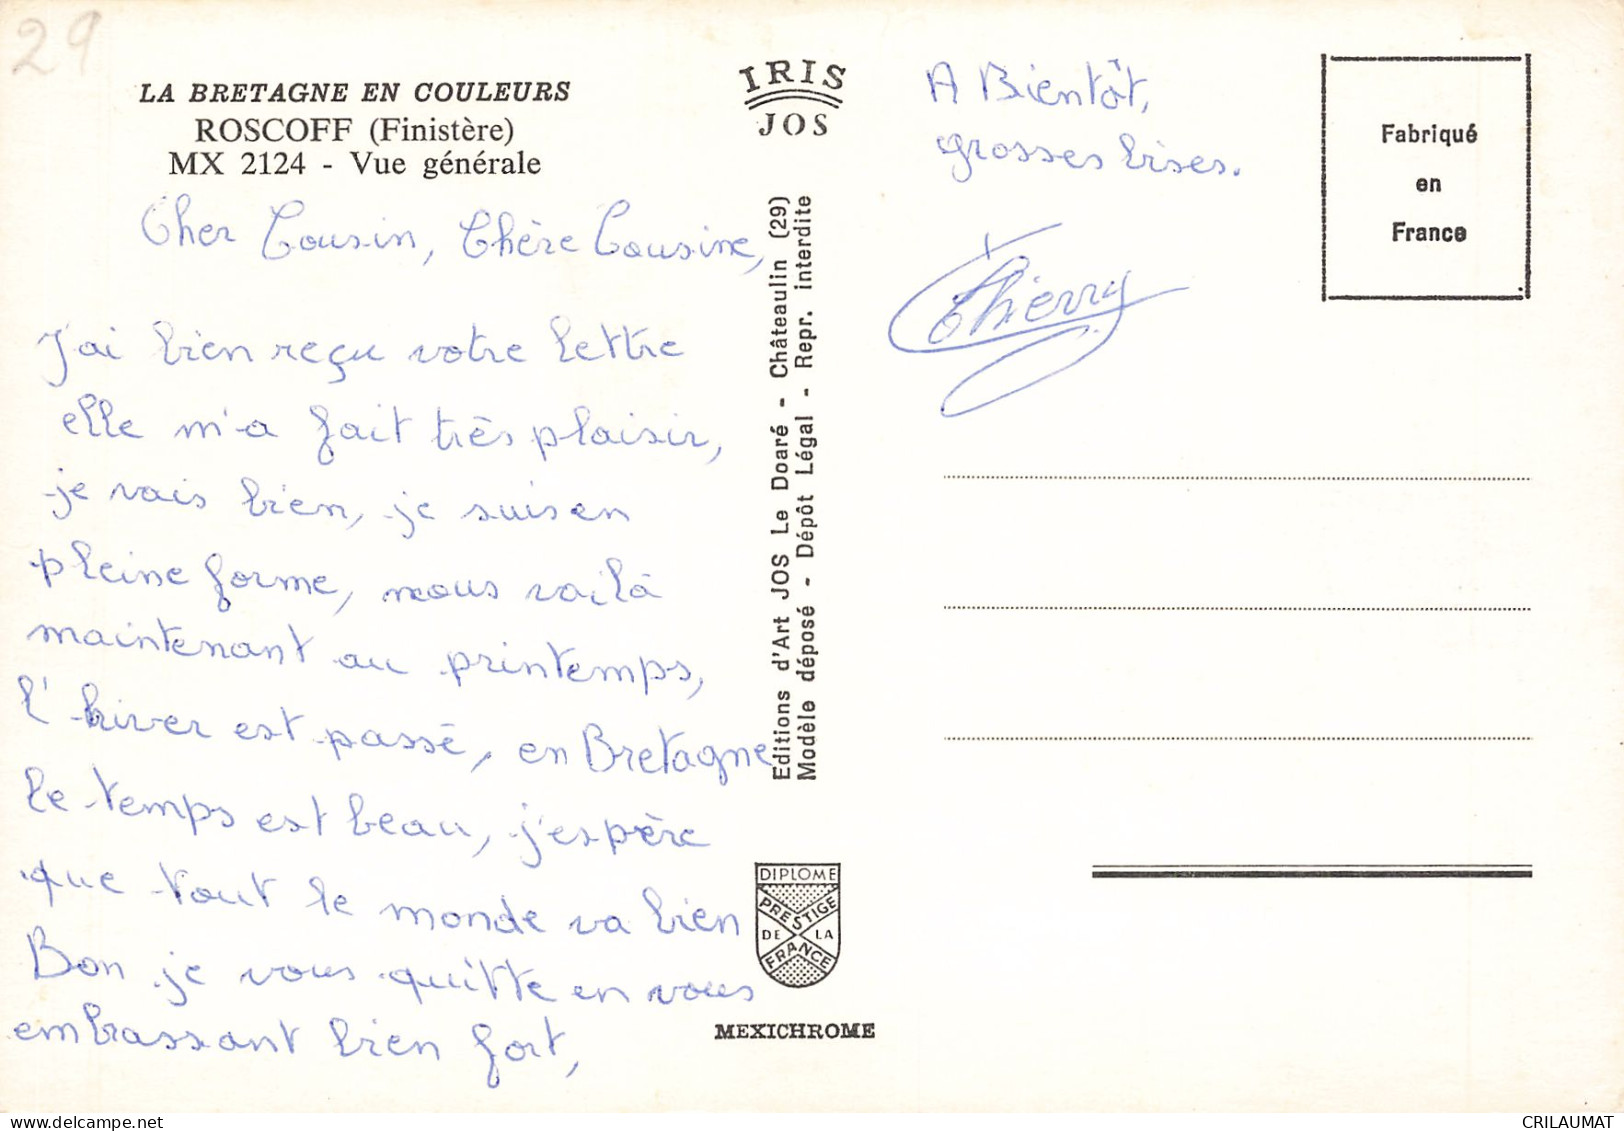 29
LA BRETAGNE EN COULEURS
ROSCOFF (Finistère)
MX 2124 - Vue générale
Cher Cousin, Chère Cousine,
J'ai bien reçu votre lettre
elle m'a fait très plaisir,
je vais bien, je suis en
pleine forme, nous voilà
maintenant au printemps,
l'hiver est passé, en Bretagne
le temps est beau, j'espère
que tout le monde va bien
Bon je vous quitte en vous
embrassant bien fort,
IRIS
JOS
Editions d'Art JOS Le Doaré - Châteaulin (29)
Modèle déposé - Dépôt Légal - Repr. interdite
DIPLOME
PRESTIGE
DE LA
FRANCE
MEXICHROME
A Bientôt,
grosses bises.
Thierry
Fabriqué
en
France
CRILAUMAT